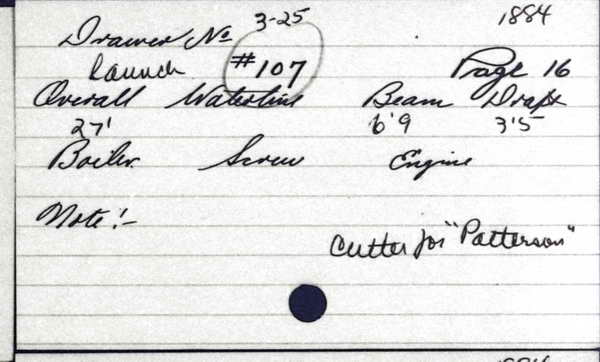 Drawer No 3-25 1884
Launch #107 Page 16
Overall Waterline Beam Draft
27' 6'9 3'5
Boiler Screw Engine
Note:-
Cutter for "Patterson"